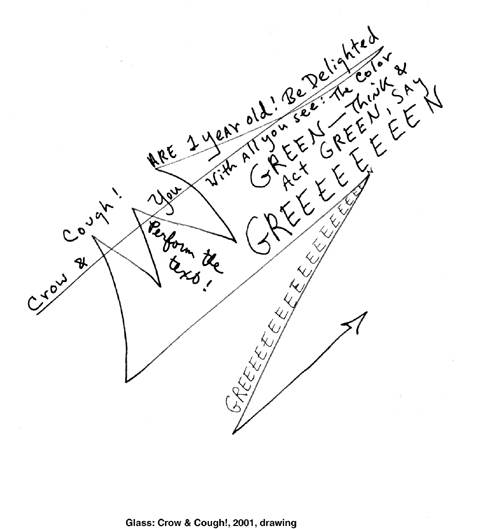 Crow & Cough!
You ARE 1 year old! Be Delighted
With all you see: The Color
GREEN — Think &
Act GREEN, SAY
GREEEEEEEEN
Perform the
text!
GREEEEEEEEEEEEEEEEEEN
Glass: Crow & Cough!, 2001, drawing